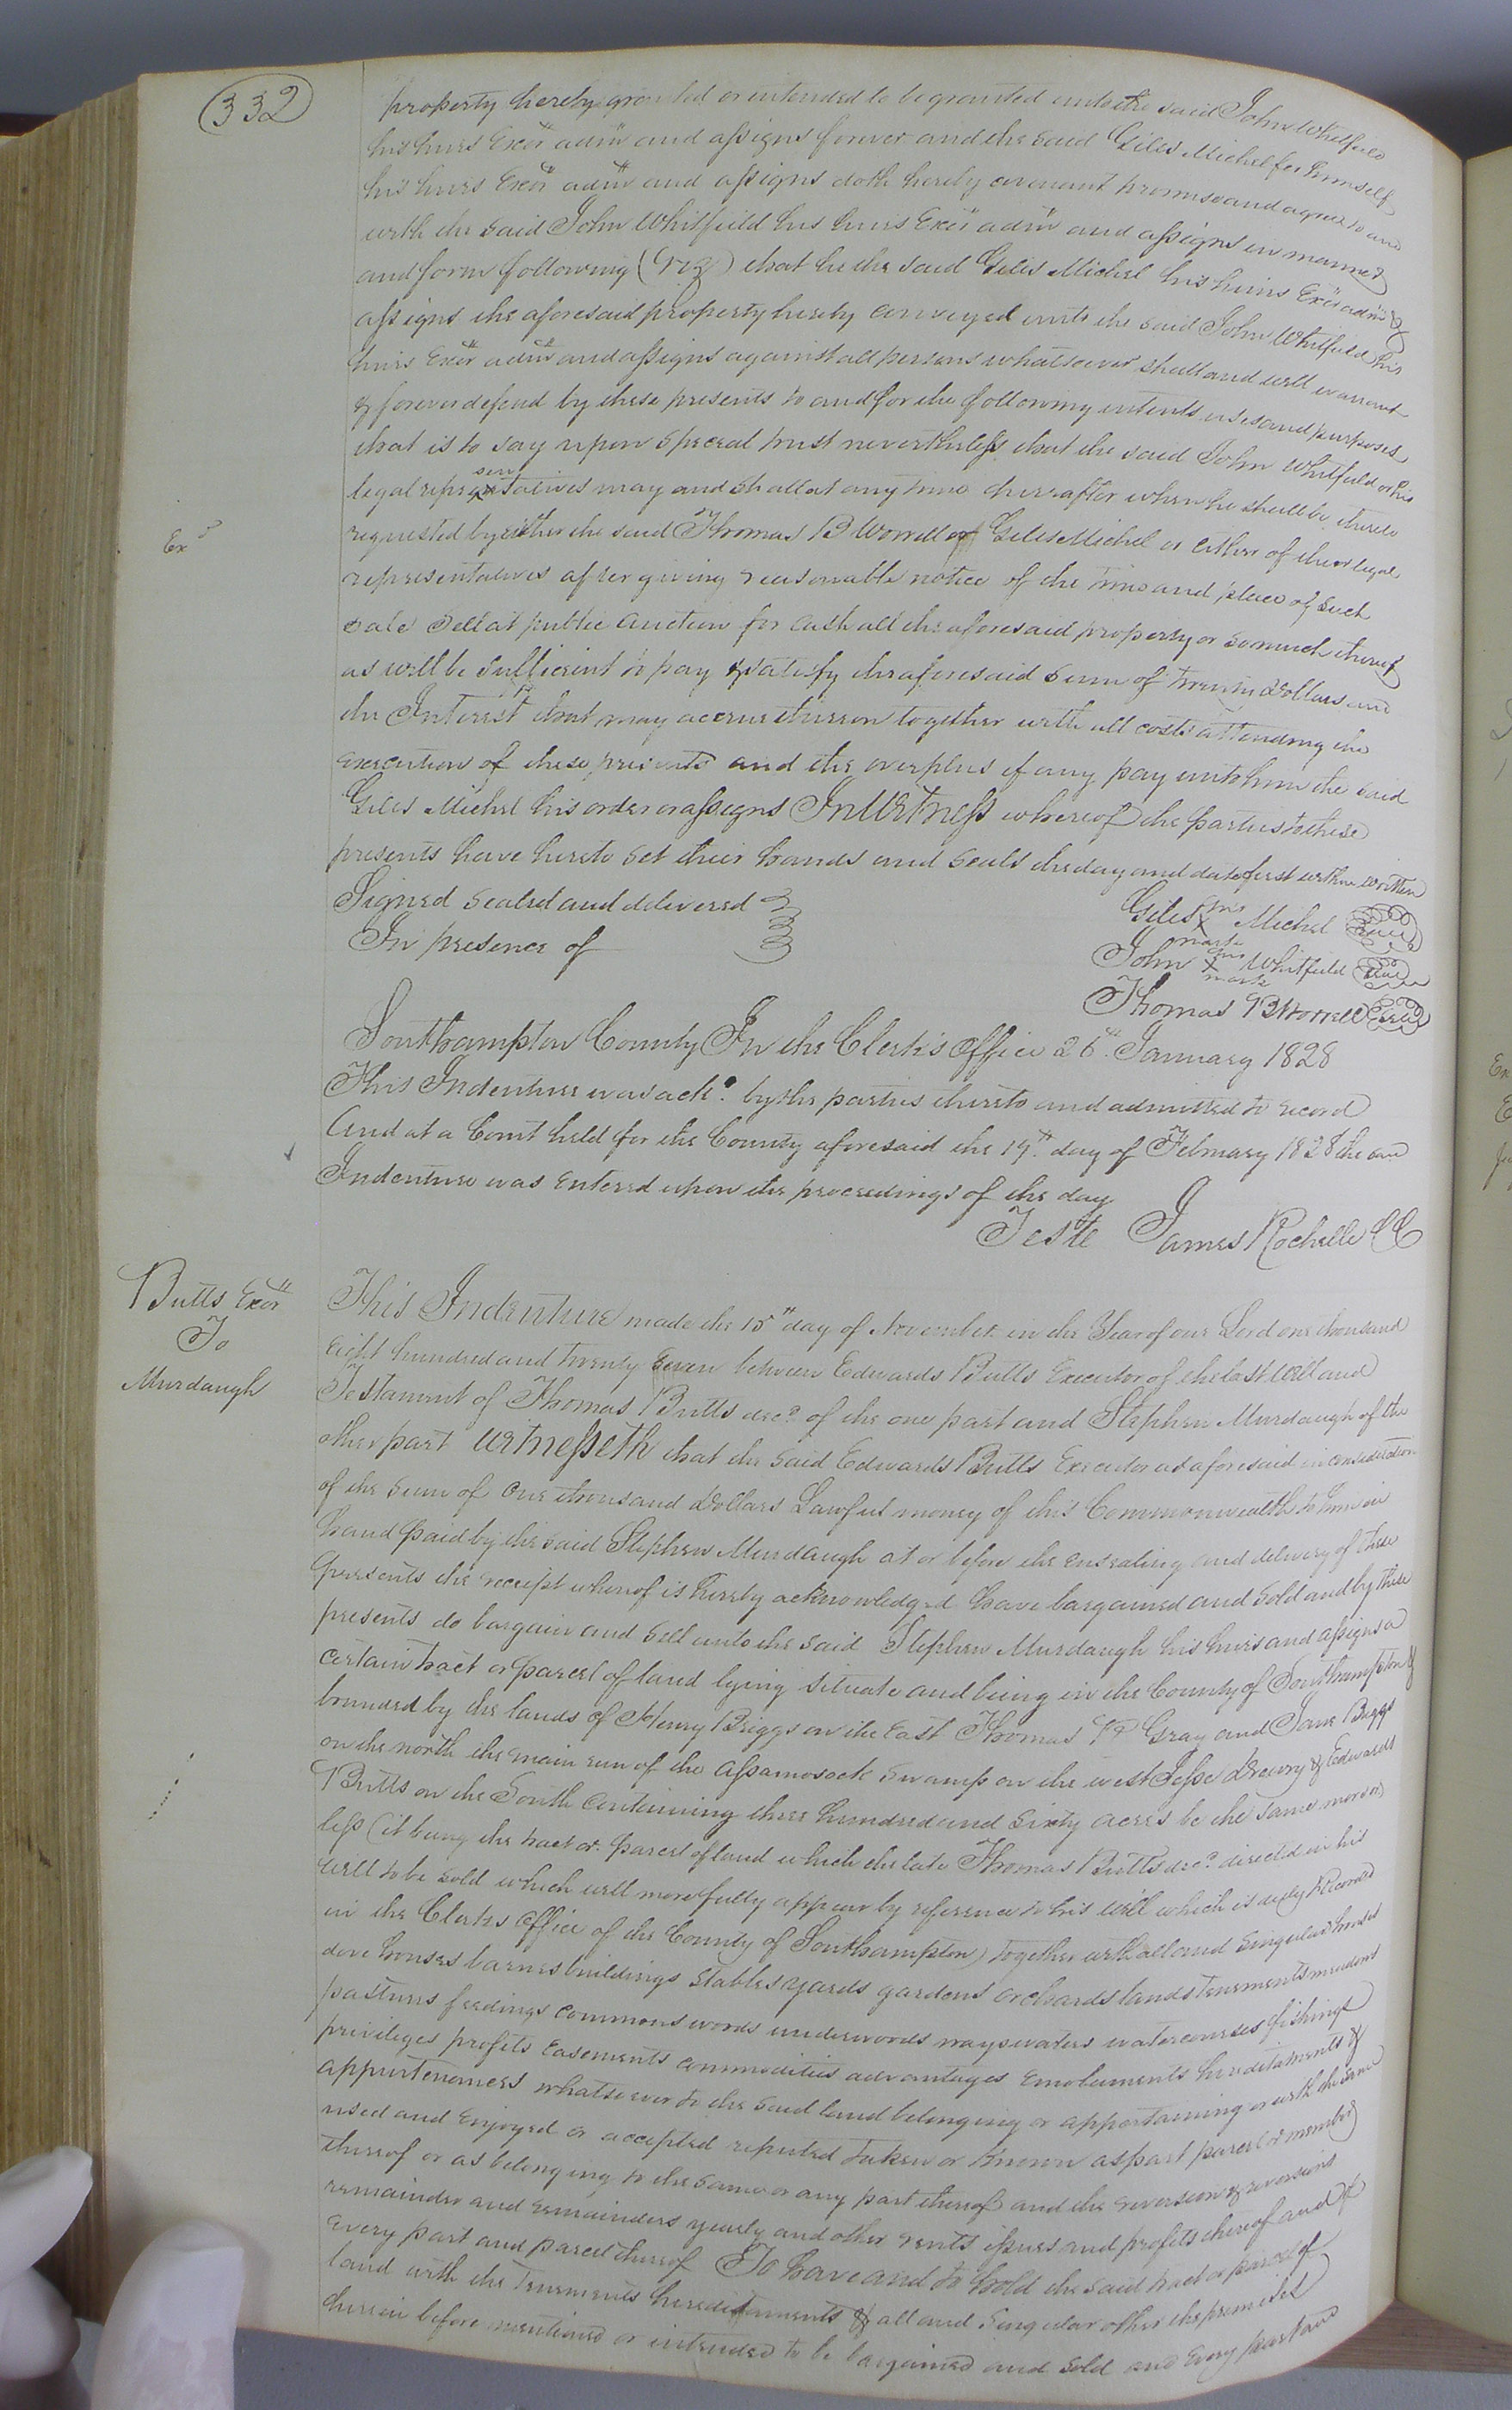 332
property hereby granted or intended to be granted unto the said John Whitfield
his heirs Exors admrs and assigns forever and the said Giles Michel for himself
his heirs Exors admrs and assigns doth hereby covenant promise and agree to and
with the said John Whitfield his heirs Exors admrs and assigns in manner
and form following (Viz) that he the said Giles Michel his heirs Exors admrs &
assigns the aforesaid property hereby conveyed unto the said John Whitfield his
heirs Exors admrs and assigns against all persons whatsoever shall and will warrant
& forever defend by these presents to and for the following intents uses and purposes
that is to say upon special trust nevertheless that the said John Whitfield or his
legal representatives may and shall at any time hereafter when he shall be thereto
Exd
requested by either the said Thomas B Worrell or Giles Michel or either of their legal
representatives after giving reasonable notice of the time and place of such
sale Sell at public auction for cash all the aforesaid property or so much thereof
as will be sufficient to pay & satisfy the aforesaid sum of Dollars and
the Interest that may accrue thereon together with all costs attending the
execution of these presents and the overplus if any pay unto him the said
Giles Michel his order or assigns In Witness whereof the parties to these
presents have hereto set their hands and seals the day and date first within written
Signed sealed and delivered
In presence of
Giles his X mark Michel Seal
John his X mark Whitfield Seal
Thomas B Worrell Seal
Southampton County In the Clerk's Office 26th January 1828
This Indenture was ackd. by the parties thereto and admitted to record
And at a Court held for the County aforesaid the 19th day of February 1828 the said
Indenture was entered upon the proceedings of the day
Teste James Rochelle CC
Butts Exor
To
Murdaugh
This Indenture made the 15th day of November in the Year of our Lord one thousand
eight hundred and twenty seven between Edwards Butts Executor of the last Will and
Testament of Thomas Butts decd. of the one part and Stephen Murdaugh of the
other part Witnesseth that the said Edwards Butts Executor as aforesaid in consideration
of the sum of One thousand Dollars Lawful money of this Commonwealth to him in
hand paid by the said Stephen Murdaugh at or before the ensealing and delivery of these
presents the receipt whereof is hereby acknowledged have bargained and sold and by these
presents do bargain and sell unto the said Stephen Murdaugh his heirs and assigns a
certain tract or parcel of land lying situate and being in the County of Southampton &
bounded by the lands of Henry Briggs on the East Thomas Gray and Jane Briggs
on the north the main run of the Assamosock Swamp on the west Jesse Drewry & Edwards
Butts on the South Containing three hundred and Sixty acres be the same more or
less (it being the tract or parcel of land which the late Thomas Butts decd. directed in his
will to be sold which will more fully appear by reference to his Will which is duly Recorded
in the Clerks Office of the County of Southampton) together with all and singular houses
dove houses barnes buildings Stables yards gardens orchards lands tenements meadows
pastures feedings commons woods underwoods ways waters watercourses fishings
privileges profits Easements commodities advantages Emoluments hereditaments &
appurtenances whatsoever to the said land belonging or appertaining or with the same
used and Enjoyed or accepted reputed taken or known as part parcel or member
thereof or as belonging to the same or any part thereof and the reversion & reversions
remainder and remainders yearly and other rents issues and profits thereof and of
every part and parcel thereof To have and to hold the said tract or parcel of
land with the Tenements hereditaments & all and Singular other the premises
herein before mentioned or intended to be bargained and sold and Every part and